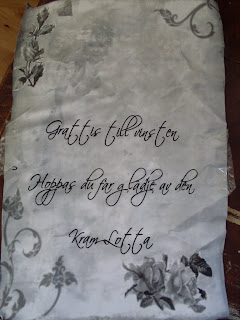 Grattis till vinsten
Hoppas du får glädje av den
Kram Lotta